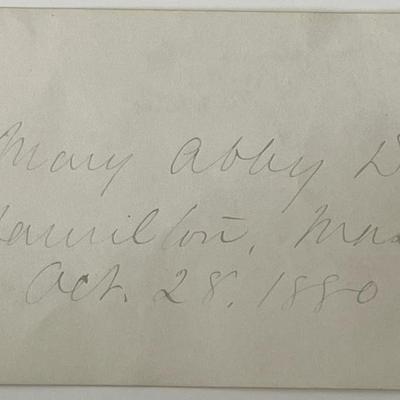 Mary Abby D
Hamilton, Mas
Oct. 28, 1880